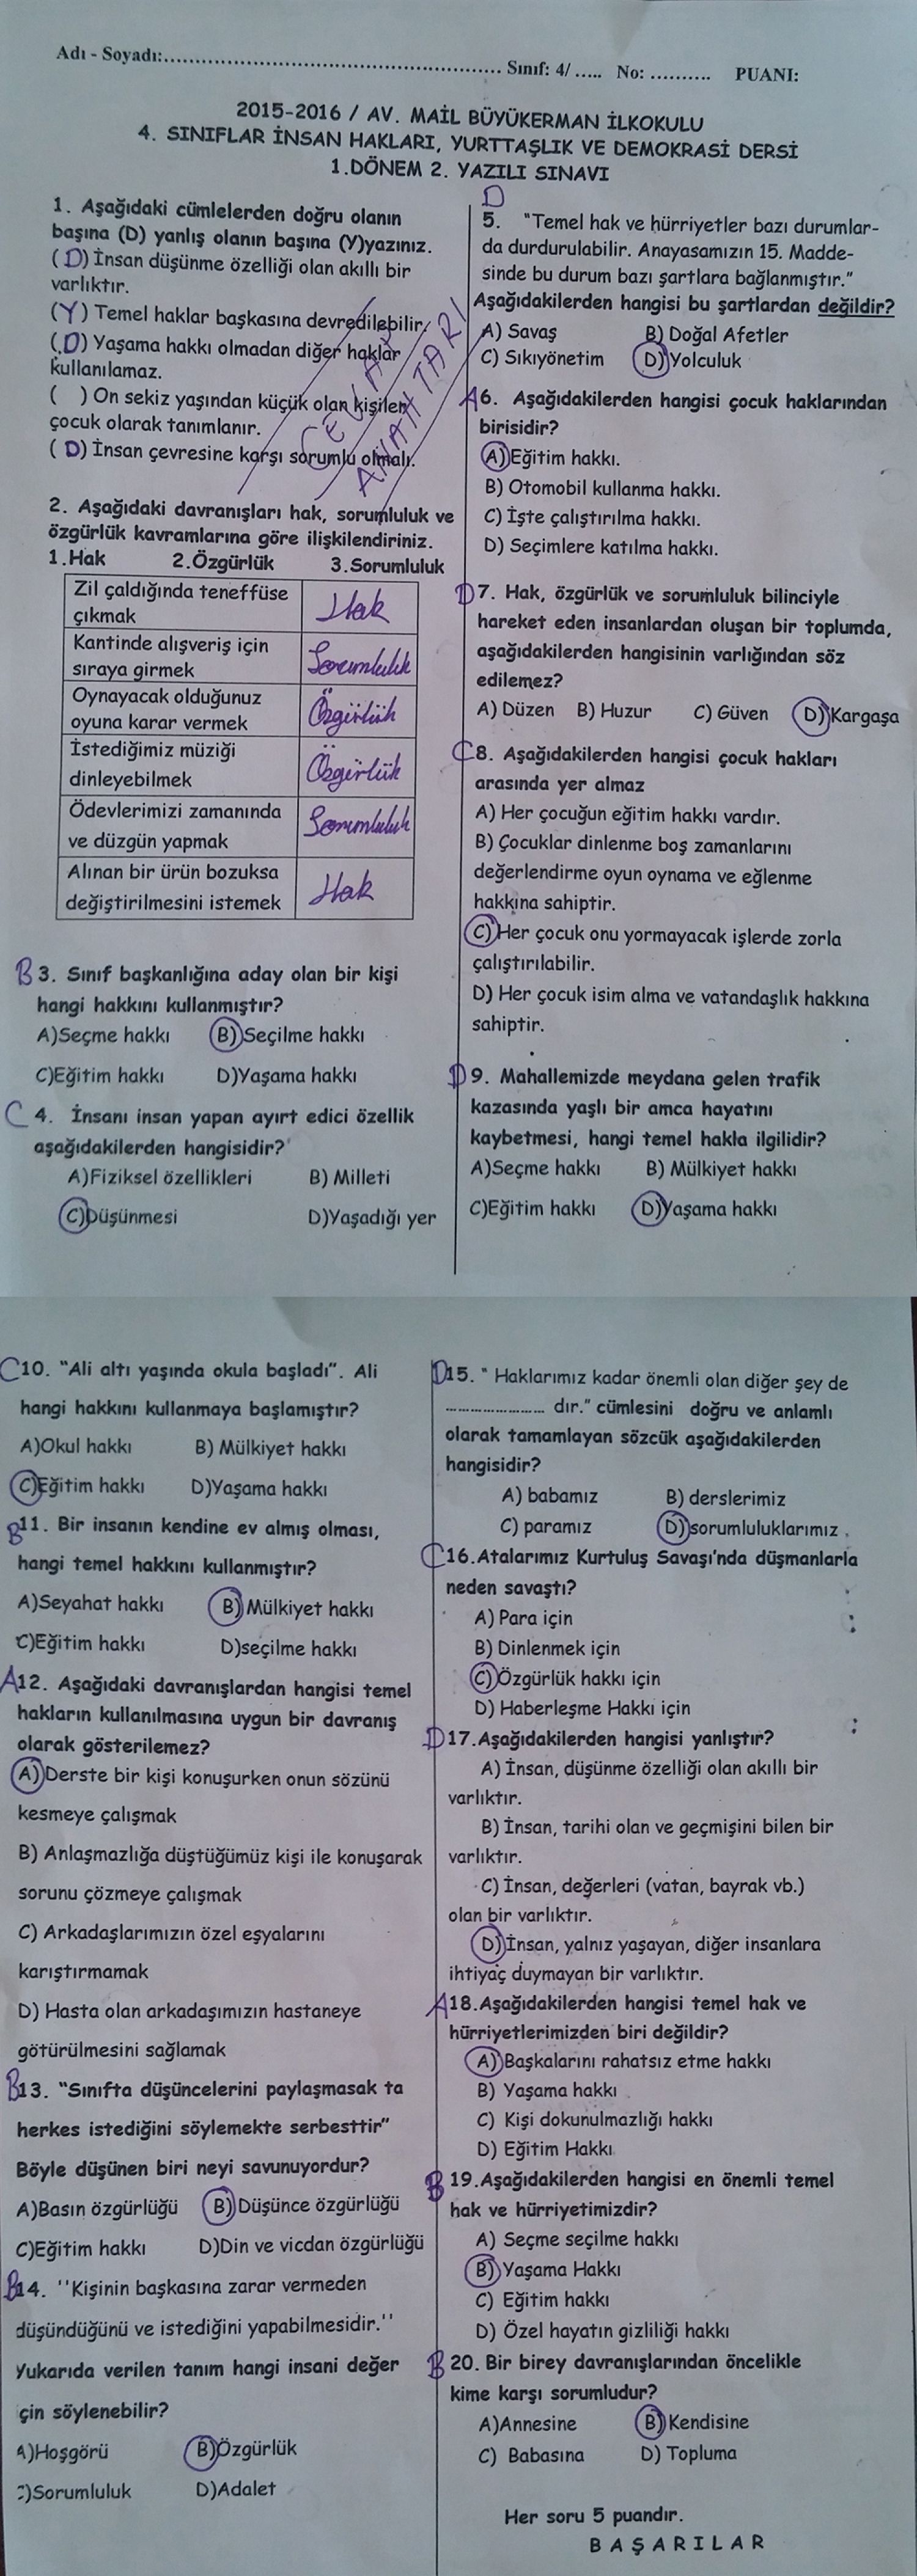 Adı - Soyadı:.................................................... Sınıf: 4/ ..... No: .......... PUANI:
2015-2016 / AV. MAİL BÜYÜKERMAN İLKOKULU
4. SINIFLAR İNSAN HAKLARI, YURTTAŞLIK VE DEMOKRASİ DERSİ
1.DÖNEM 2. YAZILI SINAVI
1. Aşağıdaki cümlelerden doğru olanın
başına (D) yanlış olanın başına (Y)yazınız.
(D) İnsan düşünme özelliği olan akıllı bir
varlıktır.
(Y) Temel haklar başkasına devredilebilir.
(D) Yaşama hakkı olmadan diğer haklar
kullanılamaz.
( ) On sekiz yaşından küçük olan kişiler
çocuk olarak tanımlanır.
(D) İnsan çevresine karşı sorumlu olmalı.
CEVAP
ANAHTARI
2. Aşağıdaki davranışları hak, sorumluluk ve
özgürlük kavramlarına göre ilişkilendiriniz.
1.Hak 2.Özgürlük 3.Sorumluluk
Zil çaldığında teneffüse
çıkmak
Hak
Kantinde alışveriş için
sıraya girmek
Sorumluluk
Oynayacak olduğunuz
oyuna karar vermek
Özgürlük
İstediğimiz müziği
dinleyebilmek
Özgürlük
Ödevlerimizi zamanında
ve düzgün yapmak
Sorumluluk
Alınan bir ürün bozuksa
değiştirilmesini istemek
Hak
B 3. Sınıf başkanlığına aday olan bir kişi
hangi hakkını kullanmıştır?
A)Seçme hakkı B)Seçilme hakkı
C)Eğitim hakkı D)Yaşama hakkı
C 4. İnsanı insan yapan ayırt edici özellik
aşağıdakilerden hangisidir?
A)Fiziksel özellikleri B) Milleti
C)Düşünmesi D)Yaşadığı yer
D
5. "Temel hak ve hürriyetler bazı durumlar-
da durdurulabilir. Anayasamızın 15. Madde-
sinde bu durum bazı şartlara bağlanmıştır."
Aşağıdakilerden hangisi bu şartlardan değildir?
A) Savaş B) Doğal Afetler
C) Sıkıyönetim D) Yolculuk
A 6. Aşağıdakilerden hangisi çocuk haklarından
birisidir?
A) Eğitim hakkı.
B) Otomobil kullanma hakkı.
C) İşte çalıştırılma hakkı.
D) Seçimlere katılma hakkı.
D 7. Hak, özgürlük ve sorumluluk bilinciyle
hareket eden insanlardan oluşan bir toplumda,
aşağıdakilerden hangisinin varlığından söz
edilemez?
A) Düzen B) Huzur C) Güven D) Kargaşa
C 8. Aşağıdakilerden hangisi çocuk hakları
arasında yer almaz
A) Her çocuğun eğitim hakkı vardır.
B) Çocuklar dinlenme boş zamanlarını
değerlendirme oyun oynama ve eğlenme
hakkına sahiptir.
C) Her çocuk onu yormayacak işlerde zorla
çalıştırılabilir.
D) Her çocuk isim alma ve vatandaşlık hakkına
sahiptir.
D 9. Mahallemizde meydana gelen trafik
kazasında yaşlı bir amca hayatını
kaybetmesi, hangi temel hakla ilgilidir?
A)Seçme hakkı B) Mülkiyet hakkı
C)Eğitim hakkı D)Yaşama hakkı
C 10. "Ali altı yaşında okula başladı". Ali
hangi hakkını kullanmaya başlamıştır?
A)Okul hakkı B) Mülkiyet hakkı
C)Eğitim hakkı D)Yaşama hakkı
B 11. Bir insanın kendine ev almış olması,
hangi temel hakkını kullanmıştır?
A)Seyahat hakkı B) Mülkiyet hakkı
C)Eğitim hakkı D)seçilme hakkı
A 12. Aşağıdaki davranışlardan hangisi temel
hakların kullanılmasına uygun bir davranış
olarak gösterilemez?
A) Derste bir kişi konuşurken onun sözünü
kesmeye çalışmak
B) Anlaşmazlığa düştüğümüz kişi ile konuşarak
sorunu çözmeye çalışmak
C) Arkadaşlarımızın özel eşyalarını
karıştırmamak
D) Hasta olan arkadaşımızın hastaneye
götürülmesini sağlamak
B 13. "Sınıfta düşüncelerini paylaşmasak ta
herkes istediğini söylemekte serbesttir"
Böyle düşünen biri neyi savunuyordur?
A)Basın özgürlüğü B) Düşünce özgürlüğü
C)Eğitim hakkı D)Din ve vicdan özgürlüğü
B 14. ''Kişinin başkasına zarar vermeden
düşündüğünü ve istediğini yapabilmesidir.''
Yukarıda verilen tanım hangi insani değer
için söylenebilir?
A)Hoşgörü B)Özgürlük
C)Sorumluluk D)Adalet
D 15. " Haklarımız kadar önemli olan diğer şey de
........................ dır." cümlesini doğru ve anlamlı
olarak tamamlayan sözcük aşağıdakilerden
hangisidir?
A) babamız B) derslerimiz
C) paramız D) sorumluluklarımız .
C 16.Atalarımız Kurtuluş Savaşı'nda düşmanlarla
neden savaştı?
A) Para için
B) Dinlenmek için
C) Özgürlük hakkı için
D) Haberleşme Hakkı için
D 17.Aşağıdakilerden hangisi yanlıştır?
A) İnsan, düşünme özelliği olan akıllı bir
varlıktır.
B) İnsan, tarihi olan ve geçmişini bilen bir
varlıktır.
C) İnsan, değerleri (vatan, bayrak vb.)
olan bir varlıktır.
D) İnsan, yalnız yaşayan, diğer insanlara
ihtiyaç duymayan bir varlıktır.
A 18.Aşağıdakilerden hangisi temel hak ve
hürriyetlerimizden biri değildir?
A) Başkalarını rahatsız etme hakkı
B) Yaşama hakkı
C) Kişi dokunulmazlığı hakkı
D) Eğitim Hakkı
B 19.Aşağıdakilerden hangisi en önemli temel
hak ve hürriyetimizdir?
A) Seçme seçilme hakkı
B) Yaşama Hakkı
C) Eğitim hakkı
D) Özel hayatın gizliliği hakkı
B 20. Bir birey davranışlarından öncelikle
kime karşı sorumludur?
A)Annesine B) Kendisine
C) Babasına D) Topluma
Her soru 5 puandır.
BAŞARILAR